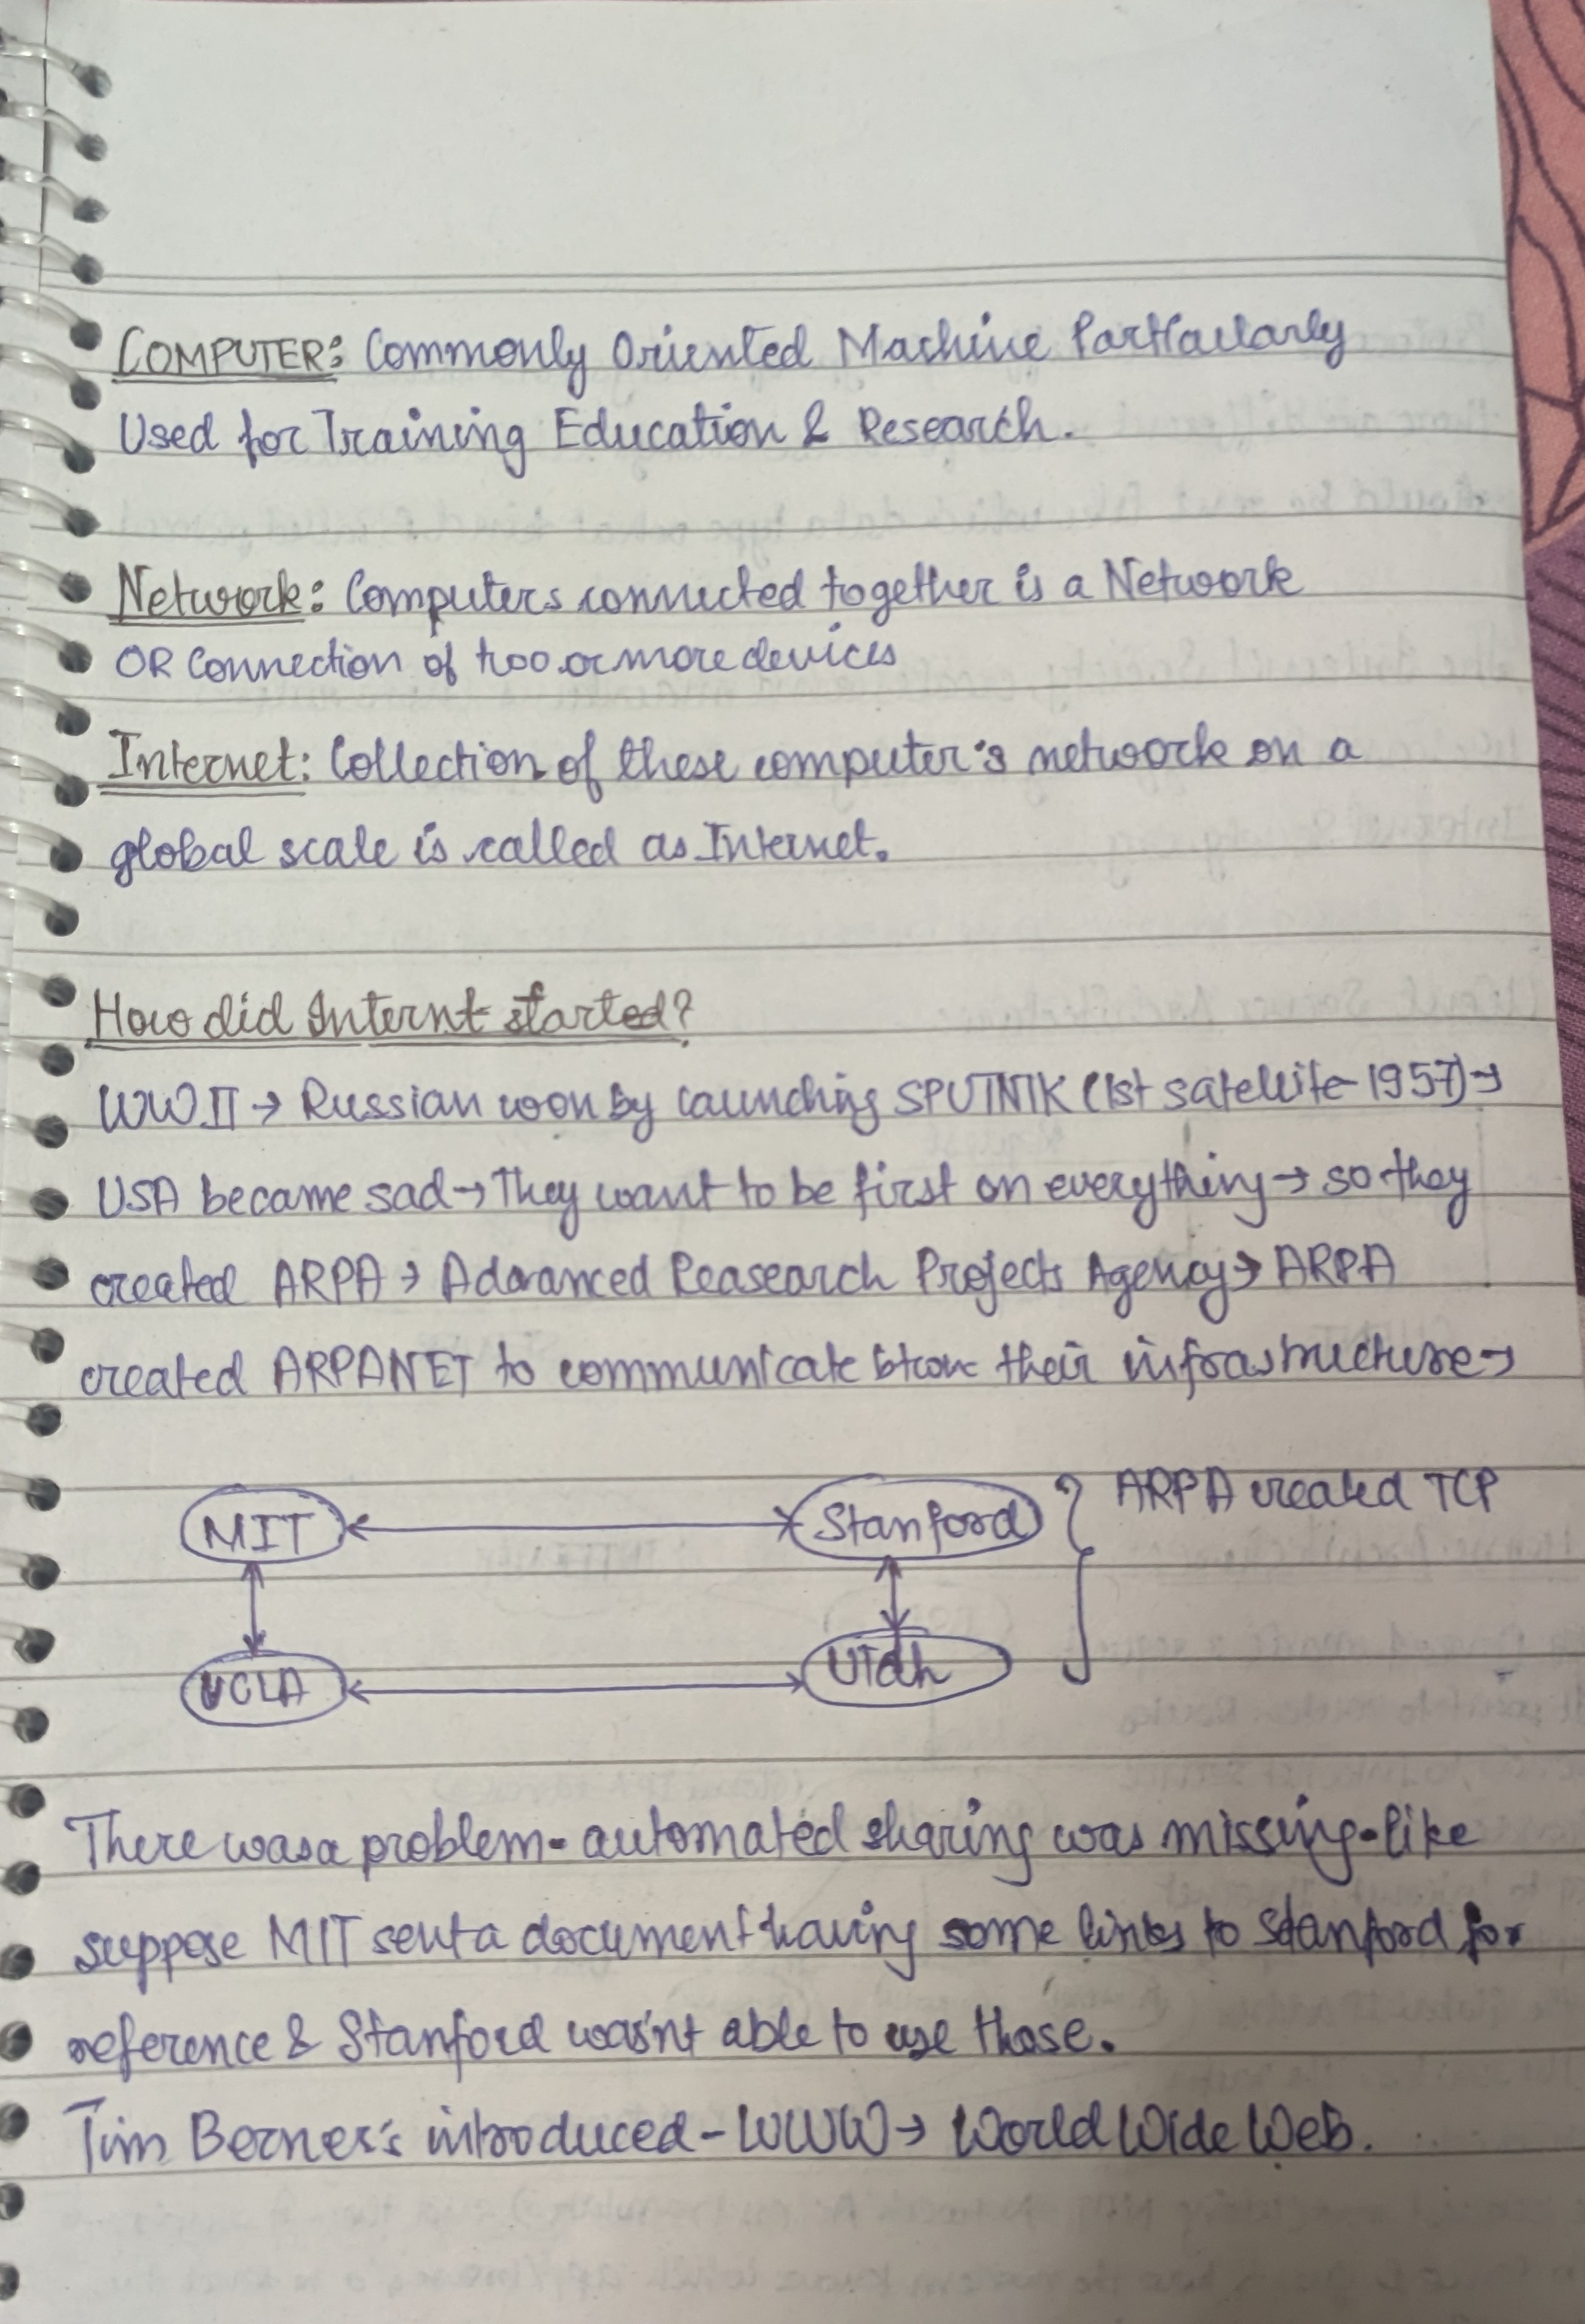 COMPUTER: Commonly Oriented Machine Particularly
Used for Training Education & Research.
Network: Computers connected together is a Network
OR Connection of two or more devices
Internet: Collection of these computer's network on a
global scale is called as Internet.
How did Internt started?
WW II → Russian won by launching SPUTNIK (1st satellite-1957) →
USA became sad → They want to be first on everything → so they
created ARPA → Advanced Reasearch Projects Agency → ARPA
created ARPANET to communicate btwn their infrastructure →
MIT Stanford ARPA created TCP
UCLA Utah
There was a problem - automated sharing was missing - like
suppose MIT sent a document having some links to Stanford for
reference & Stanford wasn't able to use those.
Tim Berner's introduced - WWW → World Wide Web.